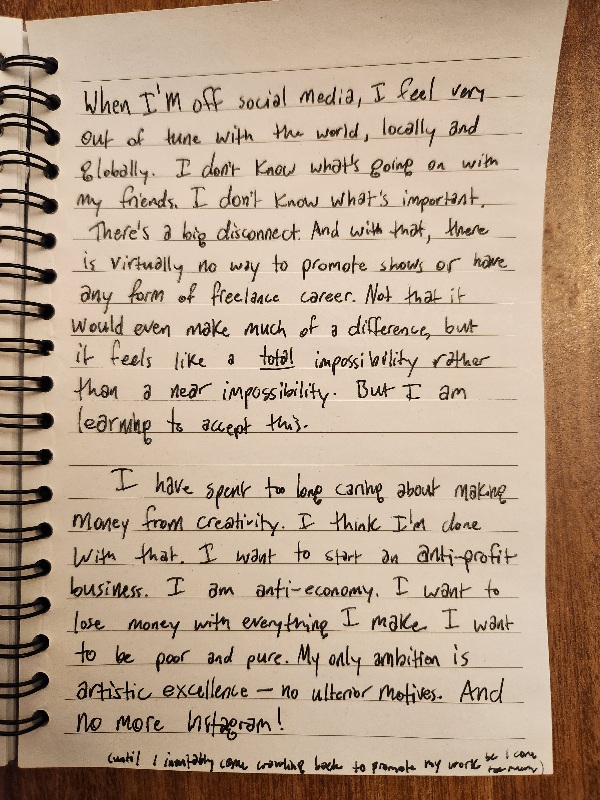 When I'M off social media, I feel very
out of tune with the world, locally and
globally. I don't know what's going on with
my friends. I don't know what's important.
There's a big disconnect. And with that, there
is virtually no way to promote shows or have
any form of freelance career. Not that it
would even make much of a difference, but
it feels like a total impossibility rather
than a near impossibility. But I am
learning to accept this.
I have spent too long caring about making
money from creativity. I think I'm done
with that. I want to start an anti-profit
business. I am anti-economy. I want to
lose money with everything I make. I want
to be poor and pure. My only ambition is
artistic excellence – no ulterior motives. And
no more Instagram!
(until I inevitably come crawling back to promote my work